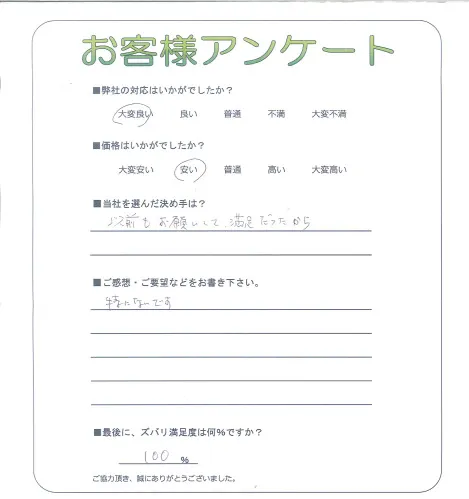 お客様アンケート
■弊社の対応はいかがでしたか？
大変良い 良い 普通 不満 大変不満
■価格はいかがでしたか？
大変安い 安い 普通 高い 大変高い
■当社を選んだ決め手は？
以前もお願いして、満足だったから
■ご感想・ご要望などをお書き下さい。
特にないです
■最後に、ズバリ満足度は何%ですか？
100 %
ご協力頂き、誠にありがとうございました。